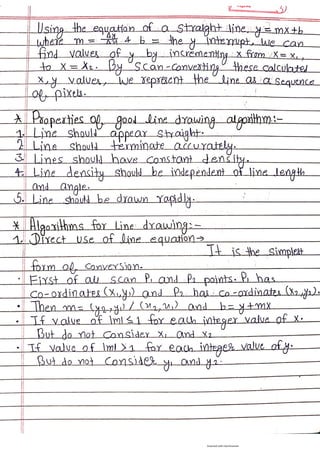 Using the equation of a straight line, y = mx+b
where m = Δy/Δx & b = the y interrupt, we can
find values of y by incrementing x from x = x₁,
to x = x₂. By scan-converting these calculated
x, y values, we represent the line as a sequence
of pixels.
* Properties of good line drawing algorithm:-
1. Line should appear straight.
2. Line should terminate accurately.
3. Lines should have constant density.
4. Line density should be independent of line length
and angle.
5. Line should be drawn rapidly.
* Algorithms for Line drawing:-
1. Direct use of line equation→
It is the simplest
form of conversion.
• First of all scan P₁ and P₂ points. P₁ has
co-ordinates (x₁,y₁) and P₂ has co-ordinates (x₂,y₂).
• Then m = (y₂,y₁) / (x₂,x₁) and b = y+mx
• If value of |m| ≤ 1 for each integer value of x.
But do not consider x₁ and x₂
• If value of |m| > 1 for each integer value of y.
But do not consider y₁ and y₂.